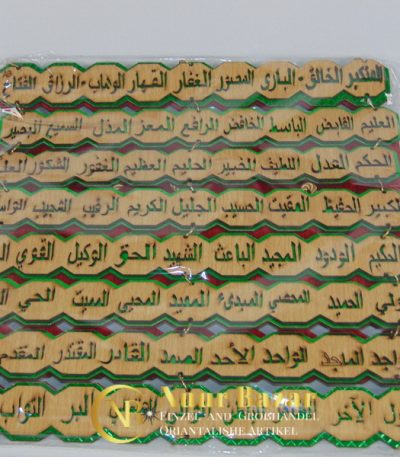 المتكبر الخالق البارئ المصور الغفار القهار الوهاب الرزاق الفتاح
العليم القابض الباسط الخافض الرافع المعز المذل السميع البصير
الحكم العدل اللطيف الخبير الحليم العظيم الغفور الشكور
الكبير الحفيظ المقيت الحسيب الجليل الكريم الرقيب المجيب
الحكيم الودود المجيد الباعث الشهيد الحق الوكيل القوي
الحميد المحصي المبدئ المعيد المحيي المميت الحي
الماجد الواحد الأحد الصمد القادر المقتدر المقدم
الآخر البر التواب
Nour Bazar
Einzel-and Großhandel
Oriantalishe Artikel